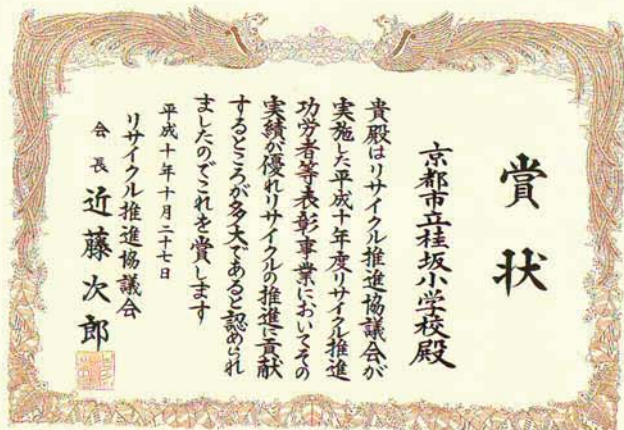 賞状
京都市立桂坂小学校殿
貴殿はリサイクル推進協議会が
実施した平成十年度リサイクル推進
功労者等表彰事業においてその
実績が優れリサイクルの推進に貢献
するところが多大であると認められ
ましたのでこれを賞します
平成十年十月二十七日
リサイクル推進協議会
会長 近藤次郎